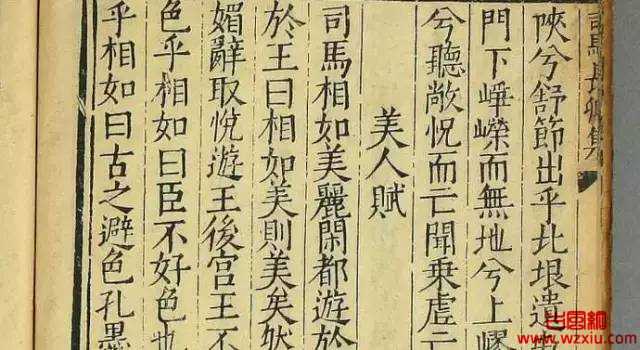 馬長卿集
陜兮舒節出乎北垠遺
門下崢嶸而無地兮上嵺
兮聽敞怳而亡聞乘虛亡
美人賦
司馬相如美麗閑都遊於
於王曰相如美則美矣然
媚辭取悅遊王後宮王不
色乎相如曰臣不好色也
乎相如曰古之避色孔墨
www.wzxiu.com